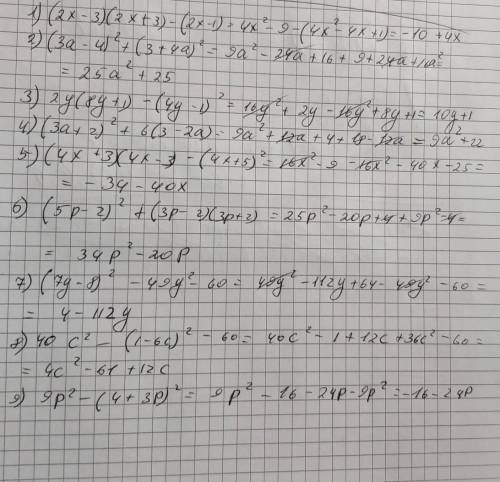 1) (2x-3)(2x+3)-(2x-1)=4x²-9-(4x²-4x+1)=-10+4x
2) (3a-4)²+(3+4a)²=9a²-24a+16+9+24a+16a²=
=25a²+25
3) 2y(8y+1)-(4y-1)²=16y²+2y-16y²+8y+1=10y+1
4) (3a+2)²+6(3-2a)=9a²+12a+4+18-12a=9a²+22
5) (4x+3)(4x-3)-(4x+5)²=16x²-9-16x²-40x-25=
=-34-40x
6) (5p-2)²+(3p-2)(3p+2)=25p²-20p+4+9p²-4=
=34p²-20p
7) (7y-8)²-49y²-60=49y²-112y+64-49y²-60=
=4-112y
8) 40c²-(1-6c)²-60=40c²-1+12c+36c²-60=
=4c²-61+12c
9) 9p²-(4+3p)²=9p²-16-24p-9p²=-16-24p